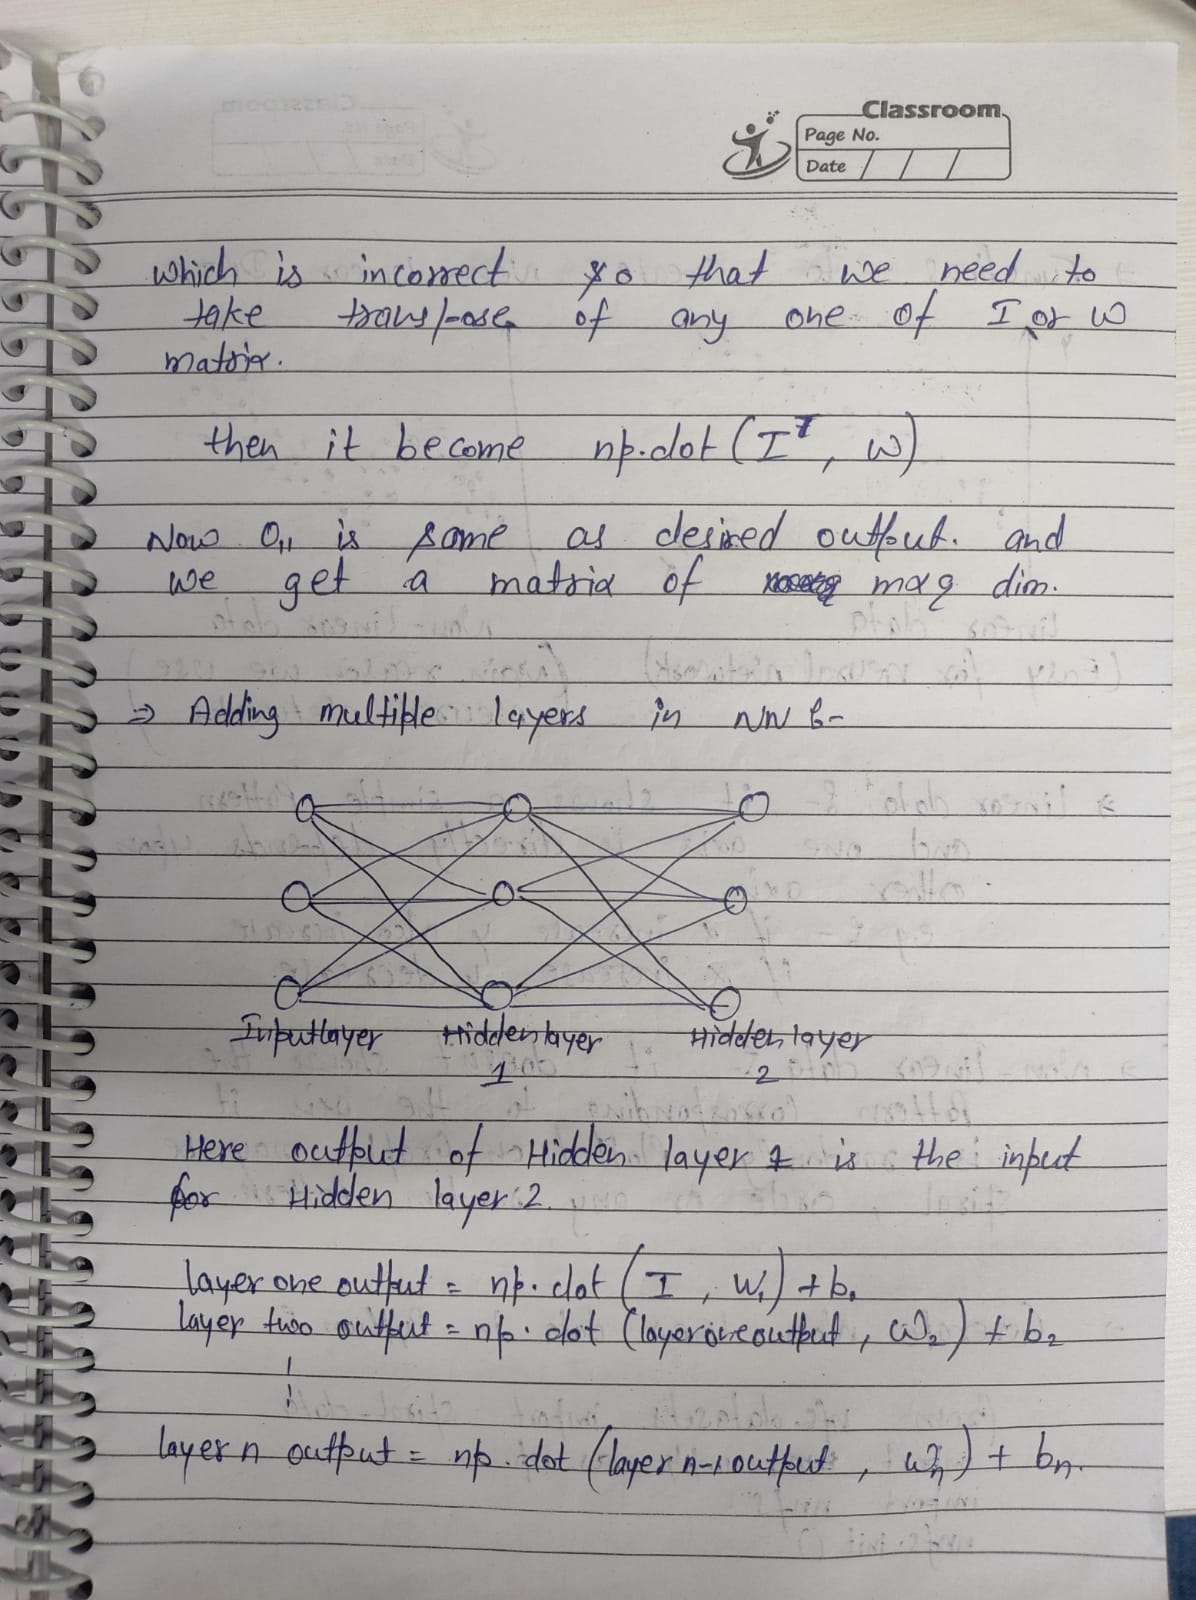 Classroom
Page No.
Date / / /
which is incorrect so that we need to
take transpose of any one of I or W
matrix.
then it become np.dot(Iᵀ, W)
Now O₁₁ is same as desired output. and
we get a matrix of mxq dim.
⇒ Adding multiple layers in NN :-
Input layer Hidden layer 1 Hidden layer 2
Here output of Hidden layer 1 is the input
for Hidden layer 2.
layer one output = np.dot(I, W₁) + b₁
layer two output = np.dot(layer one output, W₂) + b₂
layer n output = np.dot(layer n-1 output, Wₙ) + bₙ.